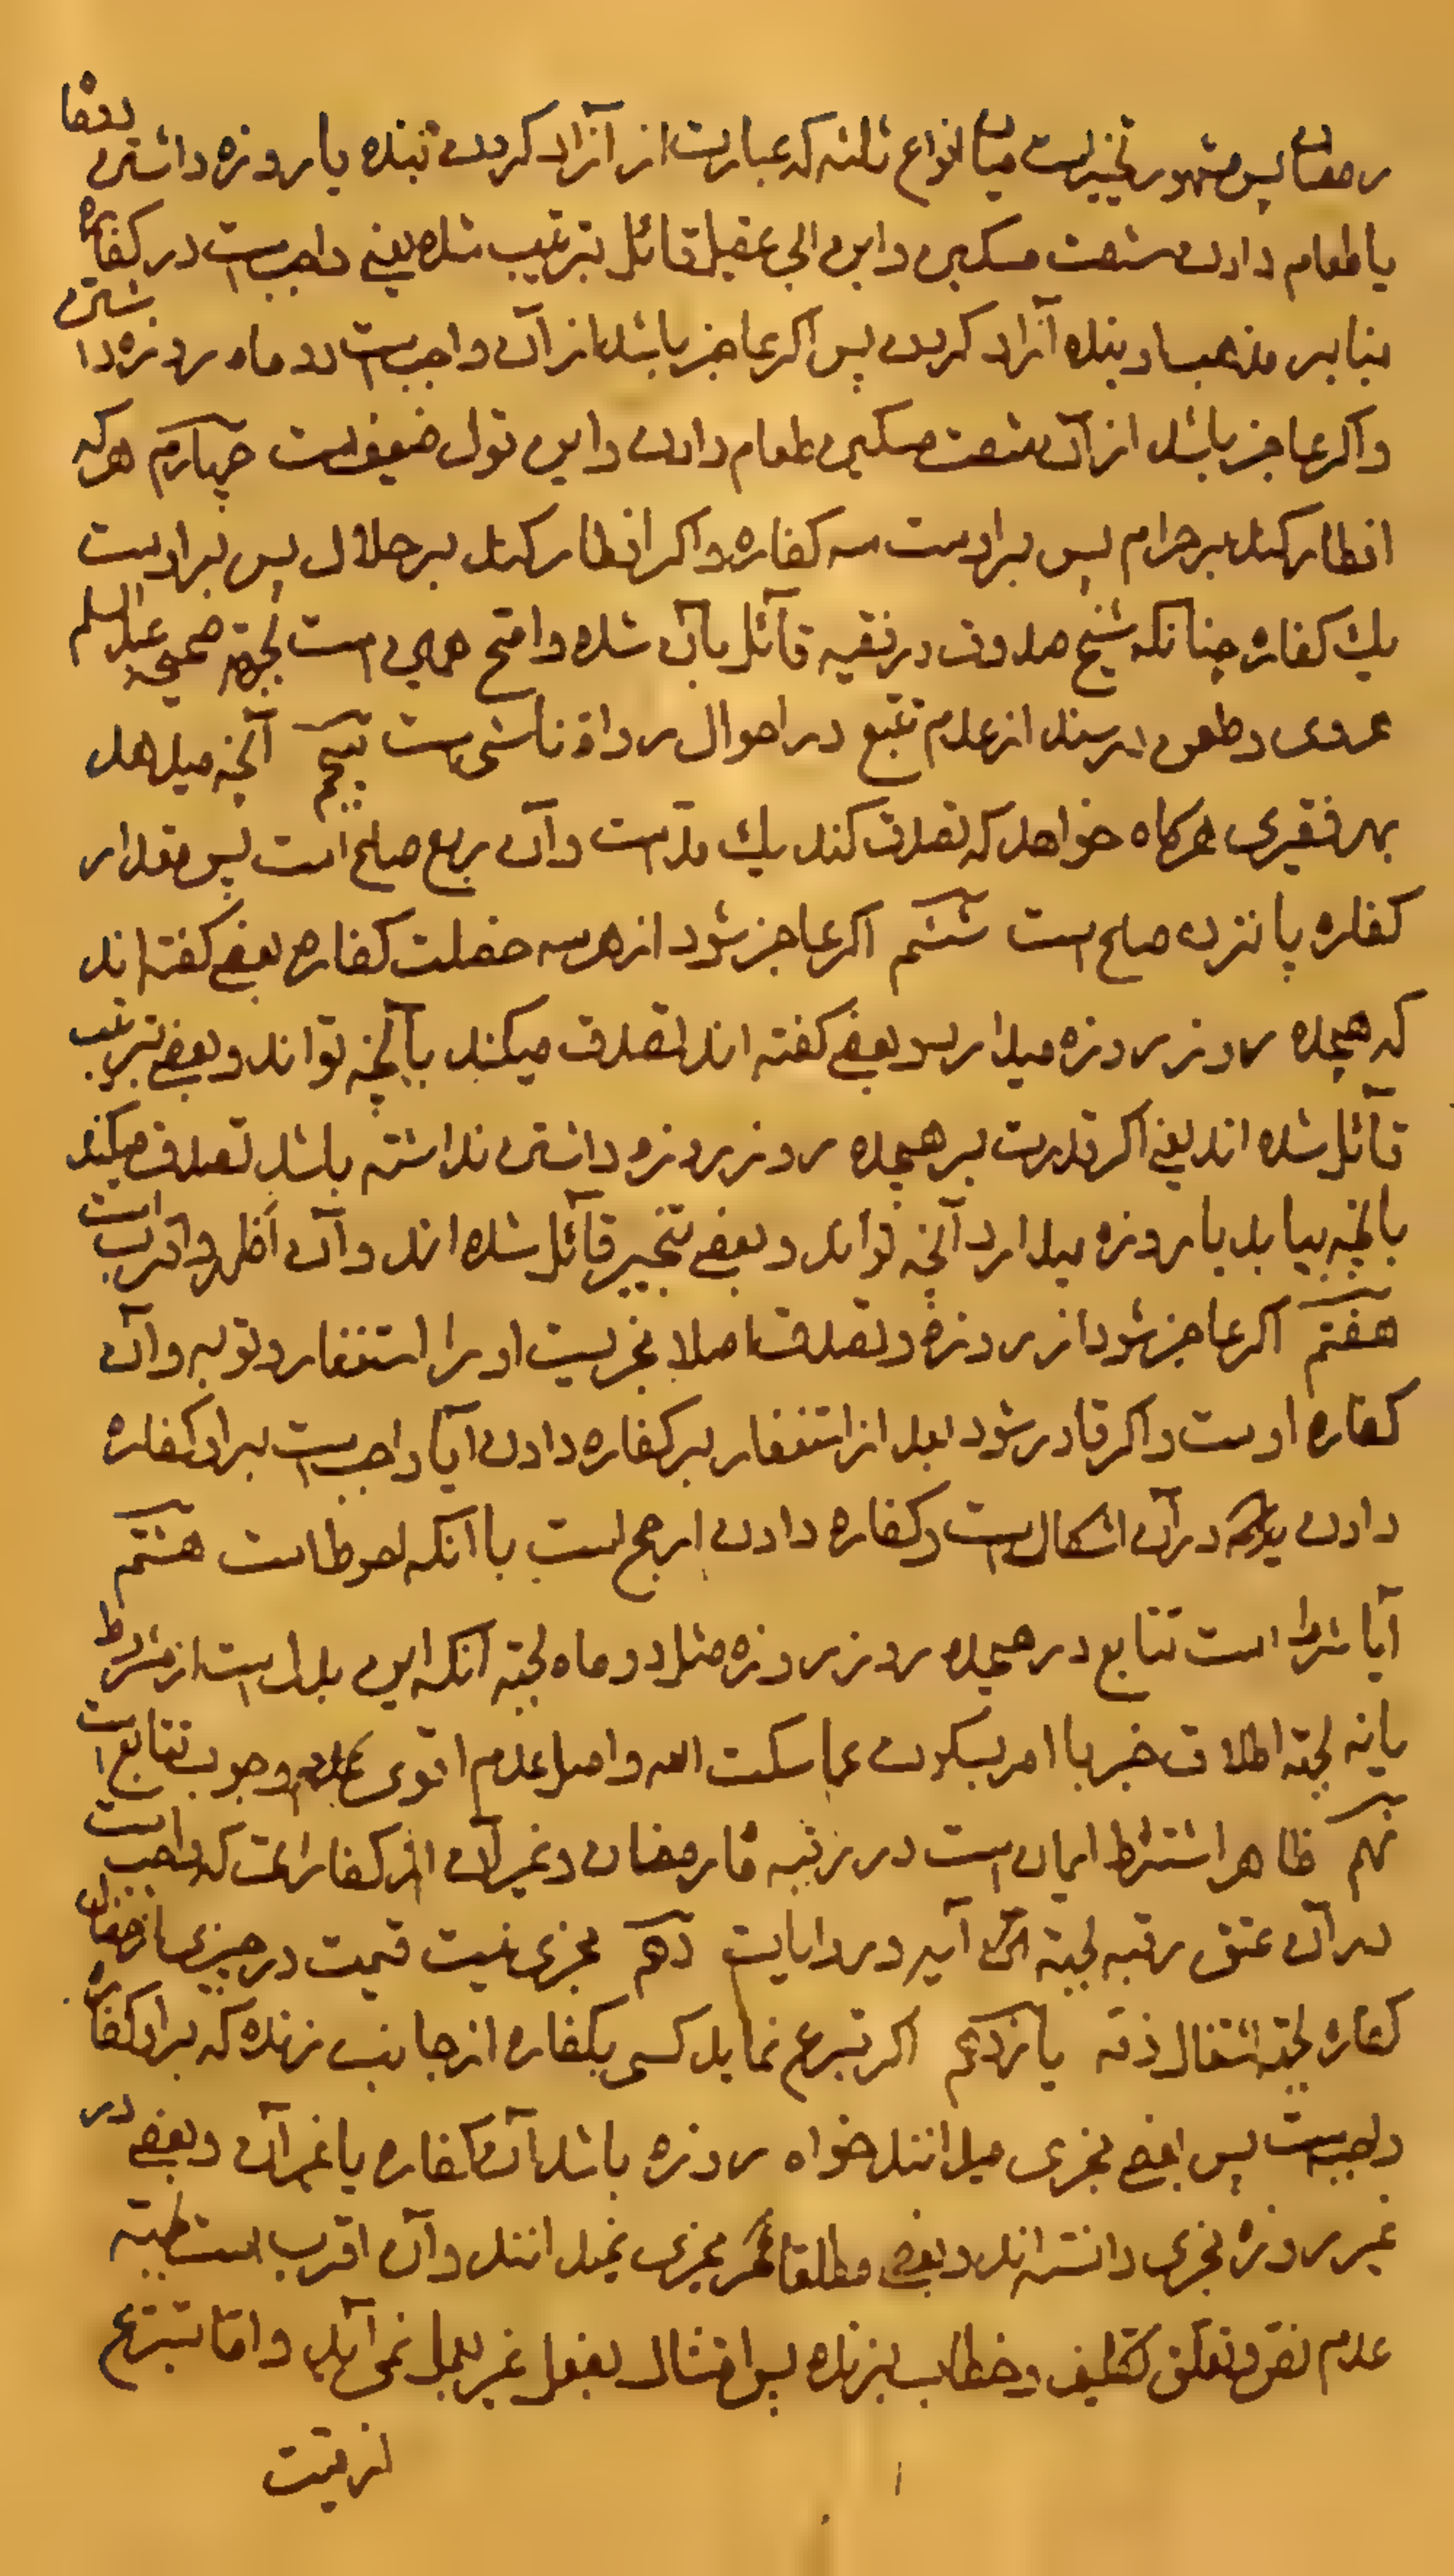 رمضان پس مشهور تخییرست میان انواع ثلثه که عبارت از آزاد کردن بنده یا روزه داشتن
یا طعام دادن شصت مسکین و ابن ابی عقیل قائل بترتیب شده یعنی واجب است در کفاره
بنابر مذهب او بنده آزاد کردن پس اکر عاجز باشد از آن واجبست دو ماه روزه داشتن
و اکر عاجز باشد از آن شصت مسکین طعام دادن و این قول ضعیفست چهارم هر که
افطار کند بر حرام پس بر اوست سه کفاره و اکر افطار کند بر حلال پس بر اوست
یك کفاره چنانکه شیخ صدوق در فقیه قائل بآن شده و اصح همین است لجهة صحیحه عبد السلم
هروی و طعن در سند از عدم تتبع در احوال رواة ناشی ست پنجم آنچه میدهد
بهر فقیری هرکاه خواهد که تصدق کند یك مدّست و آن ربع صاع است پس مقدار
کفاره پانزده صاع است ششم اکر عاجز شود از هر سه خصلت کفاره بعضی کفته اند
که هیجده روز روزه میدارد و بعضی کفته اند تصدق میکند بآنچه تواند و بعضی بترتیب
قائل شده اند یعنی اکر قدرت بر هیجده روز روزه داشتن نداشته باشد تصدق میکند
بآنچه بیابد یا روزه میدارد آنچه تواند و بعضی بتخییر قائل شده اند و آن اظهر و اقرب است
هفتم اکر عاجز شود از روزه و تصدق اصلا مجزیست او را استغفار و توبه و آن
کفاره اوست و اکر قادر شود بعد از استغفار بر کفاره دادن آیا واجبست بر او کفاره
دادن یا نه در آن اشکال است و کفاره دادن ارجح است با آنکه احوط است هشتم
آیا شرط است تتابع در هیجده روز روزه مثل دو ماه لجهة آنکه این بدل است از مشروط
یا نه لجهة اطلاق خبر با امر بسکوت عما سکت الله و اصل عدم اقوی عدم وجوب تتابع است
نهم ظاهر اشتراط ایمان است در رقبه قا رمضان و غیر آن از کفارات که واجب است
در آن عتق رقبه لجهة آیه و روایات دهم مجزی نیست قیمت در چیزی از خصال
کفاره لجهة اشتغال ذمّه یازدهم اکر تبرع نماید کسی بکفاره از جانب زنده که بر او کفاره
واجبست پس بعضی مجزی میدانند خواه روزه باشد آن کفاره یا غیر آن و بعضی در
غیر روزه مجزی دانسته اند و بعضی مطلقا مجزی نمیدانند و آن اقرب است لجهة
عدم نص و تعلق تکلیف و خطاب بزنده پس امتثال بفعل غیر بعمل نمی آید و اما تبرع
از میّت